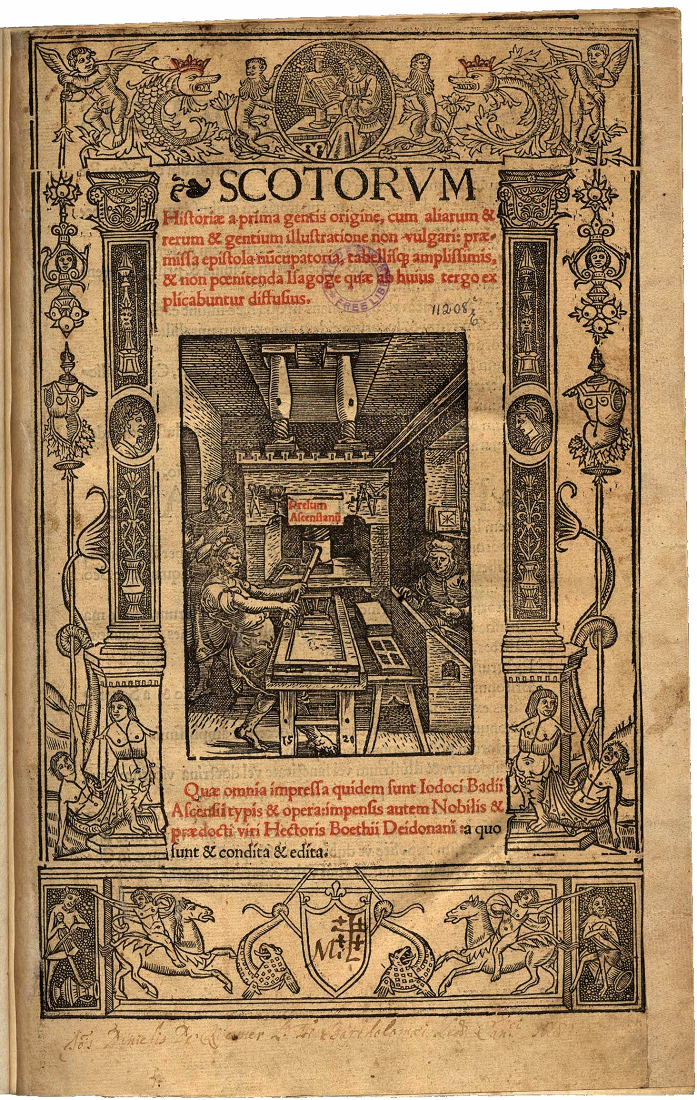 SCOTORVM
Historiæ a prima gentis origine, cum aliarum &
rerum & gentium illustratione non vulgari: præ-
missa epistola nũcupatoria, tabellisq; amplissimis,
& non pœnitenda Isagoge quæ ab huius tergo ex
plicabuntur diffusius.
112086
Prelum
Ascensianũ
15 21
Quæ omnia impressa quidem sunt Iodoci Badii
Ascensii typis & opera: impensis autem Nobilis &
prædocti viri Hectoris Boethii Deidonani: a quo
sunt & condita & edita.